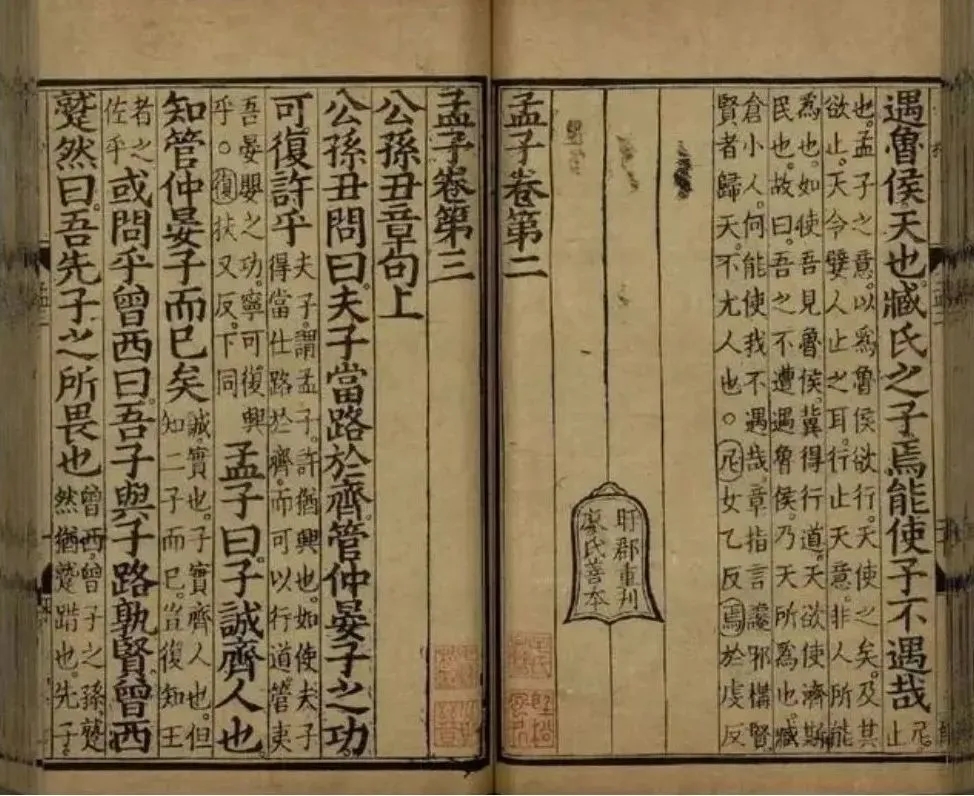 遇魯侯天也。臧氏之子焉能使予不遇哉尼。止
也。孟子之意。以爲魯侯欲行。天使之矣。及其
欲止。天令嬖人止之耳。行止天意。非人所能
爲也。如使吾見魯侯。冀得行道。天欲使濟斯
民也。故曰。吾之不遭遇魯侯。乃天所爲也。臧
倉小人。何能使我不遇哉。章指言讒邪構賢
賢者歸天。不尤人也。○尼女乙反焉於虔反
盱郡重刊
廖氏善本
孟子卷第二
孟子卷第三
公孫丑章句上
公孫丑問曰。夫子當路於齊。管仲晏子之功。
可復許乎夫子。謂孟子。許猶興也。如使夫子得當仕路於齊。而可以行道。管夷
吾晏嬰之功。寧可復興乎。○復扶又反。下同孟子曰。子誠齊人也
知管仲晏子而已矣誠。實也。子實齊人也。但知二子而已。豈復知王
者之佐乎或問乎曾西曰。吾子與子路孰賢。曾西
蹵然曰。吾先子之所畏也曾西。曾子之孫。蹵然猶蹵踖也。先子